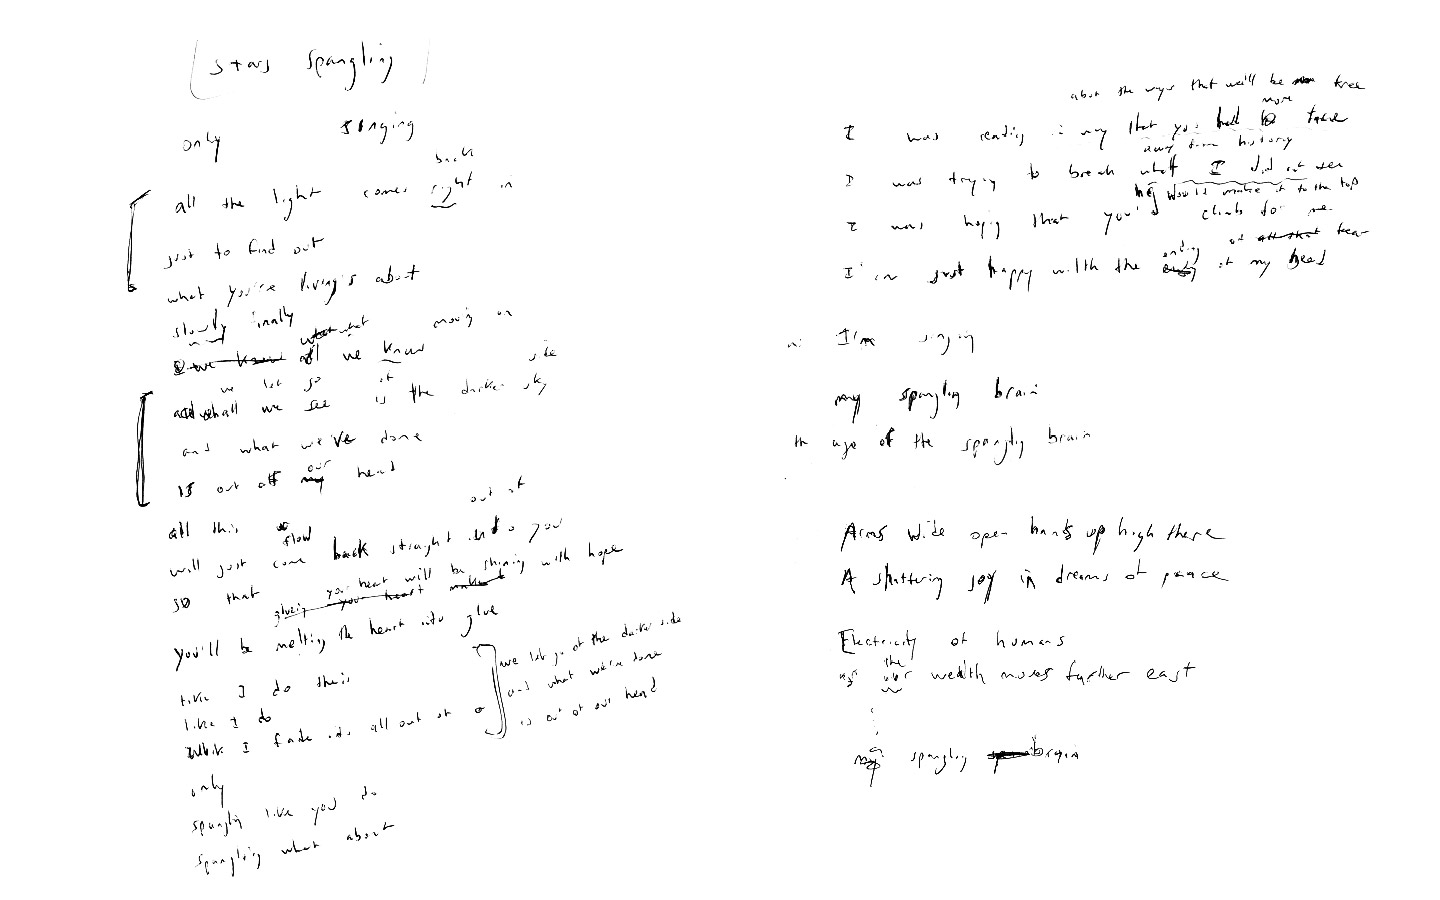 stars spangling
only singing
back
all the light comes right in
just to find out
what you're living's about
slowly finally
what moving on
all we know
we let go of side
all we see is the darker sky
and what we've done
our
is out of my head
all this flow
out of
will just come back straight into you
so that your heart will be shining with hope
glueing your heart make
you'll be melting the heart into glue
like I do this
like I do
while I fade into all out of
we let go of the darker side
and what we've done
is out of our head
only
spanglin like you do
spangling what about
about the ways that we'll be free
more
I was reading in my that you had to face
away from history
I was trying to break what I did not see
he would make it to the top
I was hoping that you'd climb for me
ending of all that fear
I'm just happy with the of my head
I'm singing
my spangling brain
the age of the spangly brain
Arms wide open hands up high there
A shattering joy in dreams of peace
Electricity of humans
the
as our wealth moves further east
a
my spangling brain